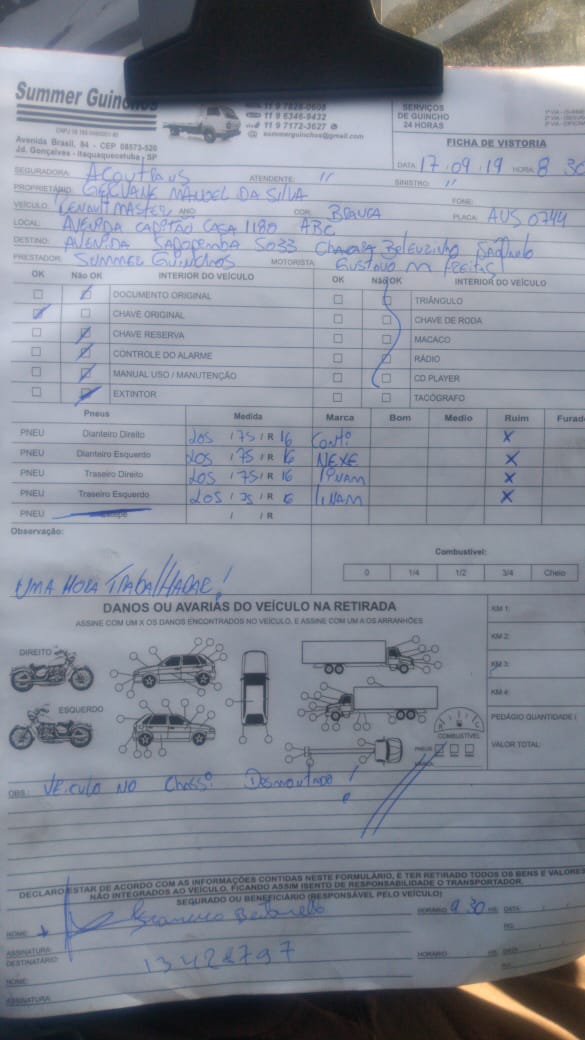 Summer Guinchos
Avenida Brasil, 84 - CEP 08573-520
Jd. Gonçalves - Itaquaquecetuba - SP
11 9 7828-0608
11 9 6346-9432
11 9 7172-3627
@ summerguinchos@gmail.com
SERVIÇOS
DE GUINCHO
24 HORAS
FICHA DE VISTORIA
DATA: 17.09.19 HORA: 8 30
SEGURADORA: ATENDENTE: " SINISTRO: "
PROPRIETÁRIO: MANOEL DA SILVA FONE:
VEÍCULO: RENAULT MASTER ANO: COR: BRANCA PLACA: AUS 0744
LOCAL: AVENIDA CAPITÃO CASA 1180 ABC
DESTINO: AVENIDA SAPOPEMBA 5033
PRESTADOR: SUMMER GUINCHOS MOTORISTA: GUSTAVO M FREITAS
OK Não OK INTERIOR DO VEÍCULO OK Não OK INTERIOR DO VEÍCULO
DOCUMENTO ORIGINAL TRIÂNGULO
CHAVE ORIGINAL CHAVE DE RODA
CHAVE RESERVA MACACO
CONTROLE DO ALARME RÁDIO
MANUAL USO / MANUTENÇÃO CD PLAYER
EXTINTOR TACÓGRAFO
Pneus Medida Marca Bom Medio Ruim Furado
PNEU Dianteiro Direito 205 / 75 / R 16 Conti X
PNEU Dianteiro Esquerdo 205 / 75 / R 16 NEXE X
PNEU Traseiro Direito 205 / 75 / R 16 X
PNEU Traseiro Esquerdo 205 / 75 / R 16 X
PNEU / / R
Observação:
Combustível:
0 1/4 1/2 3/4 Cheio
UMA HORA TRABALHADAE!
DANOS OU AVARIAS DO VEÍCULO NA RETIRADA
ASSINE COM UM X OS DANOS ENCONTRADOS NO VEÍCULO, E ASSINE COM UM A OS ARRANHÕES
KM 1:
KM 2:
KM 3:
KM 4:
DIREITO
ESQUERDO
PEDÁGIO QUANTIDADE
COMBUSTÍVEL
VALOR TOTAL:
PNEUS
OBS.: VEICULO NO CHASSI DESMONTADO!
DECLARO ESTAR DE ACORDO COM AS INFORMAÇÕES CONTIDAS NESTE FORMULÁRIO, E TER RETIRADO TODOS OS BENS E VALORES
NÃO INTEGRADOS AO VEÍCULO, FICANDO ASSIM ISENTO DE RESPONSABILIDADE O TRANSPORTADOR.
SEGURADO OU BENEFICIÁRIO (RESPONSÁVEL PELO VEÍCULO)
NOME: HORÁRIO: 9 30 HS DATA:
RG:
ASSINATURA:
DESTINATÁRIO: 13428797 HORÁRIO: HS DATA:
NOME:
ASSINATURA: